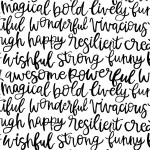 magical bold lively fun
tiful wonderful vivacious
ugh happy resilient creat
wishful strong funny
awesome powerful w
magical bold lively fun
tiful wonderful vivacious
ugh happy resilient creat
wishful strong funny